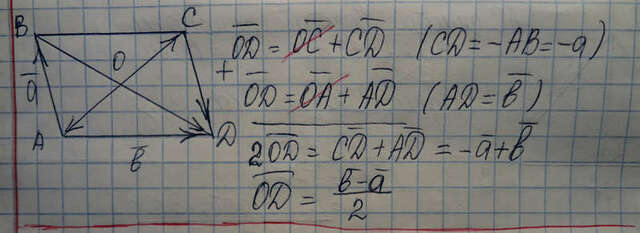 B C
O
a̅
A D
b̅
O̅D̅ = O̅C̅ + C̅D̅ (CD = -AB = -a)
+
O̅D̅ = O̅A̅ + A̅D̅ (AD = b̅)
2O̅D̅ = C̅D̅ + A̅D̅ = -a̅ + b̅
O̅D̅ = b̅-a̅
2